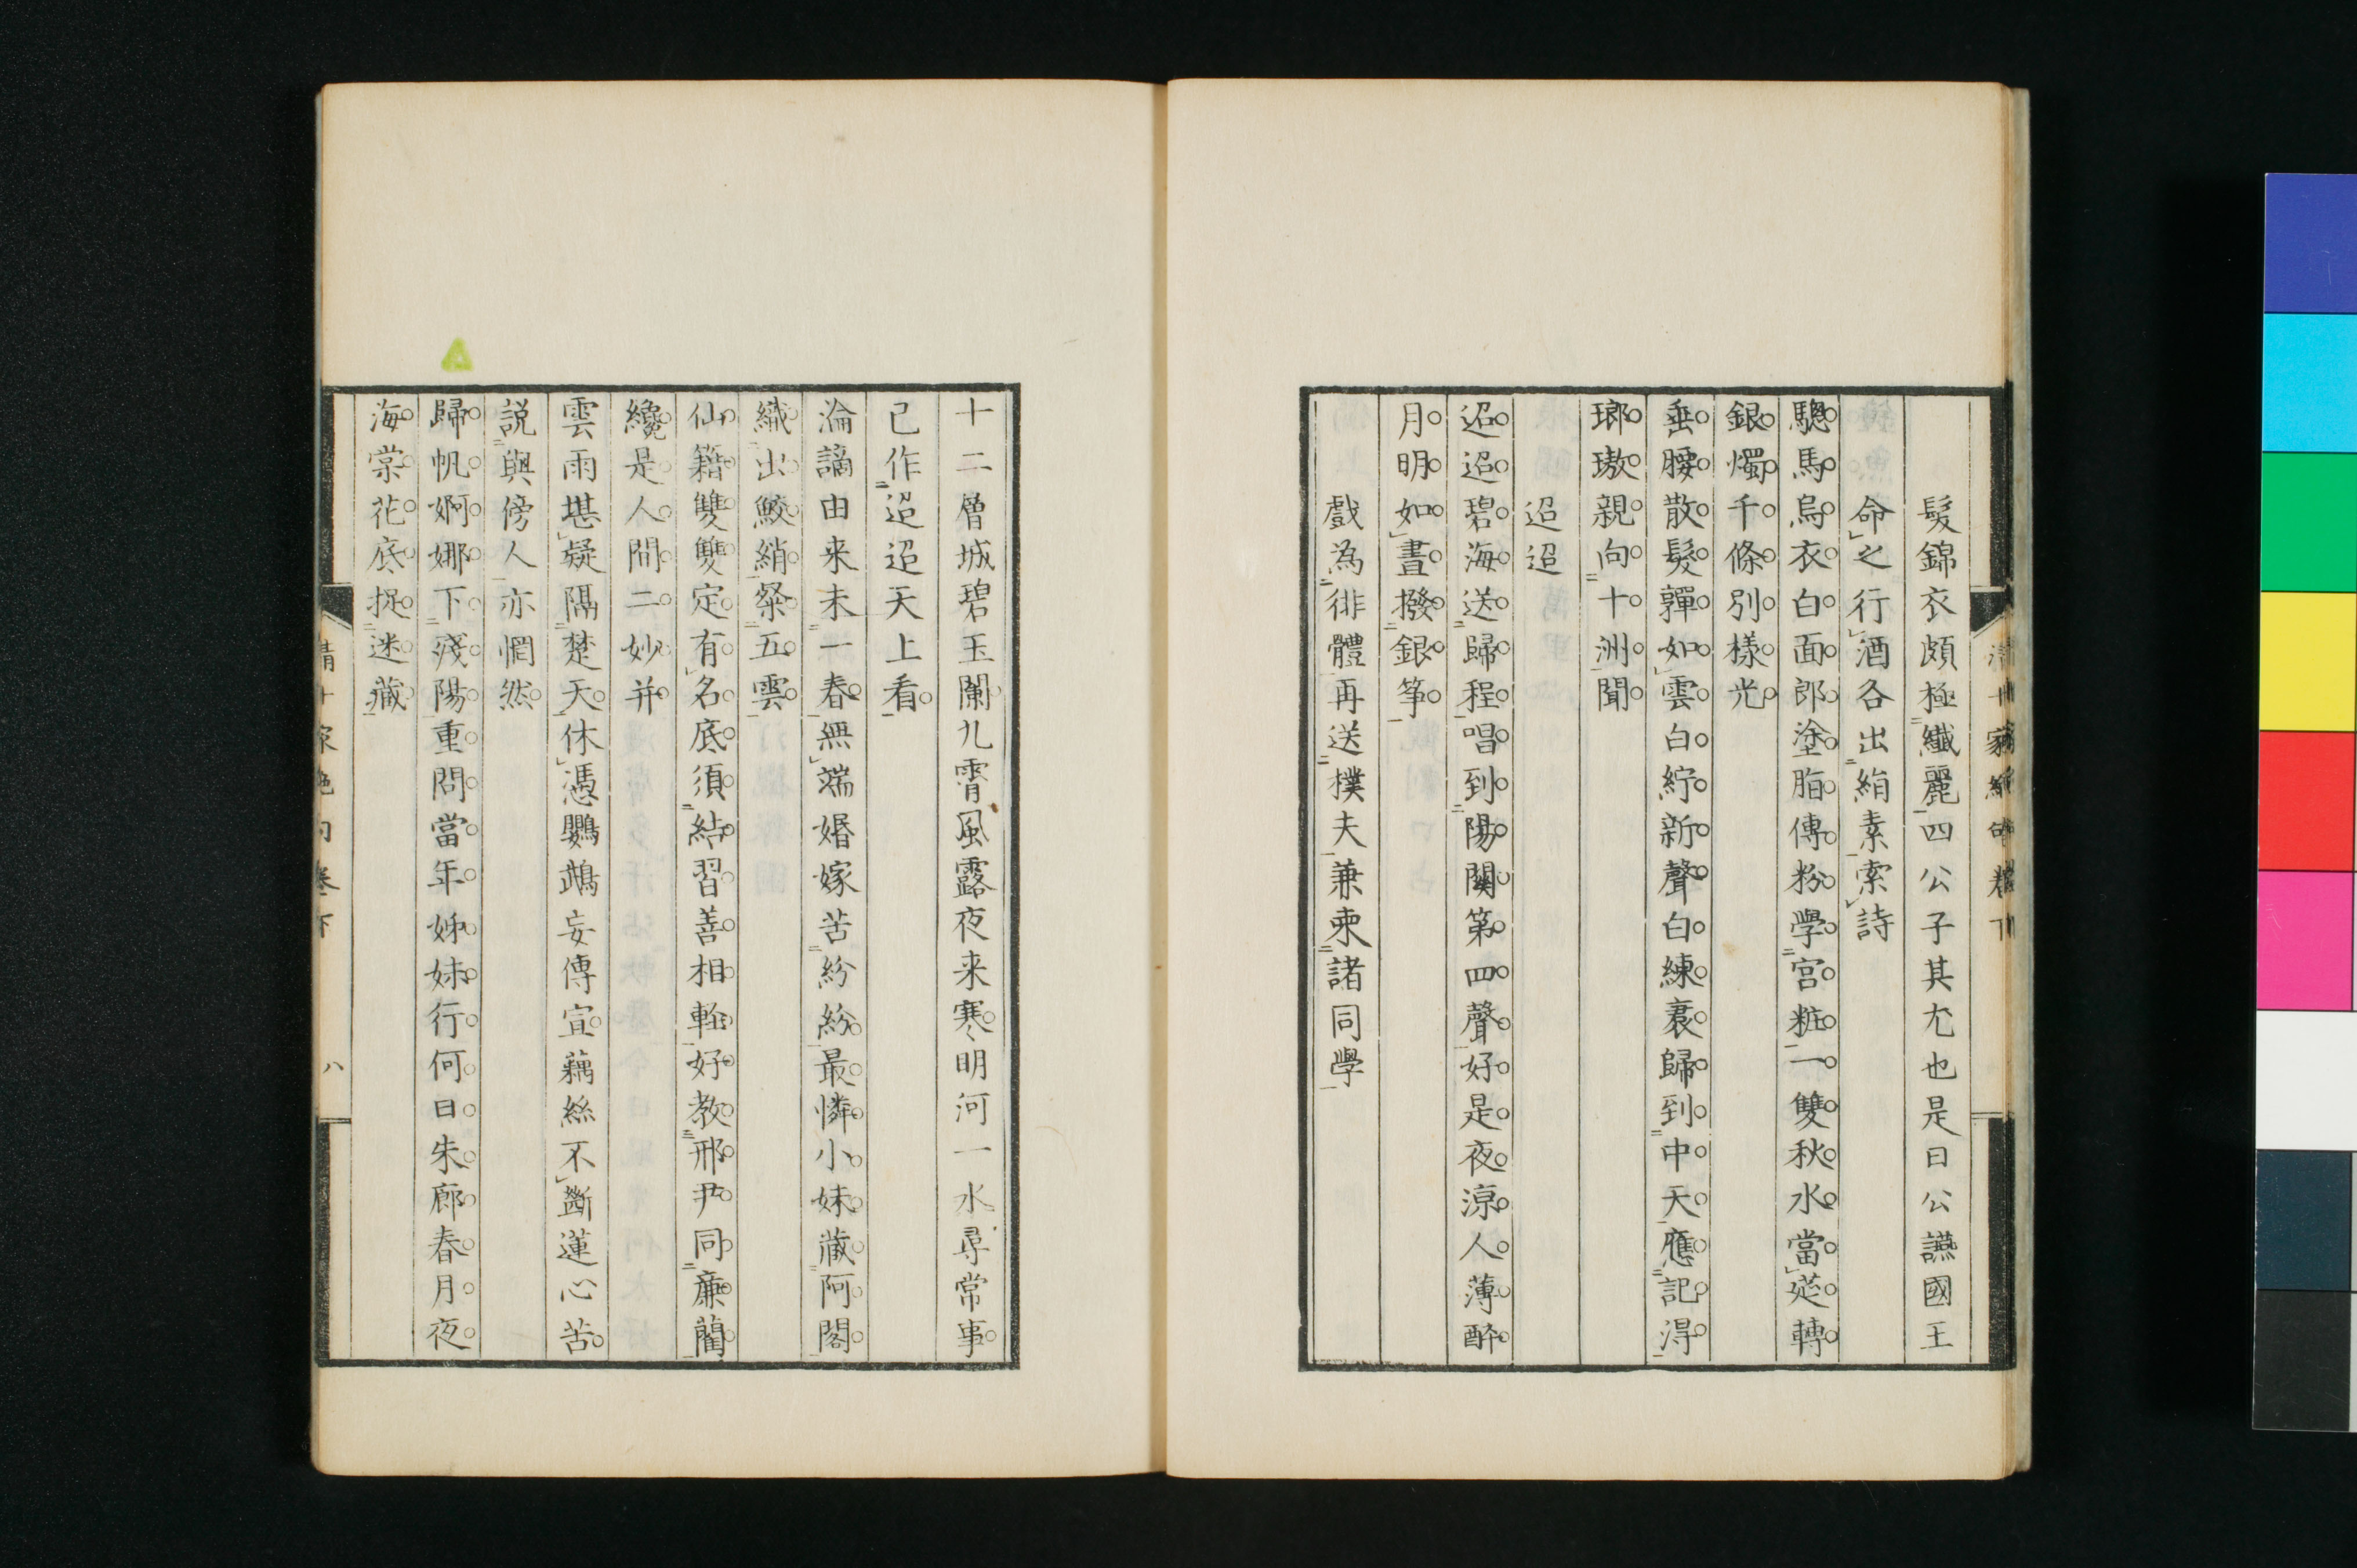 髮錦衣頗極纖麗四公子其尤也是日公讌國王
命之行酒各出絹素索詩
驄馬烏衣白面郎塗脂傳粉學宮粧一雙秋水當筵轉
銀燭千條別樣光
垂腰散髮嚲如雲白紵新聲白練裠歸到中天應記得
瑯璈親向十洲聞
迢迢
迢迢碧海送歸程唱到陽關第四聲好是夜涼人薄醉
月明如晝撥銀箏
戲為徘體再送樸夫兼柬諸同學
十二層城碧玉闌九霄風露夜来寒明河一水尋常事
已作迢迢天上看
淪謫由来未一春無端婚嫁苦紛紛最憐小妹藏阿閣
織出鮫綃粲五雲
仙籍雙雙定有名底須結習善相輕好教邢尹同廉藺
纔是人間二妙并
雲雨堪疑隔楚天休憑鸚鵡妄傳宣藕絲不斷蓮心苦
説與傍人亦惘然
歸帆婀娜下殘陽重問當年姊妹行何日朱廊春月夜
海棠花底捉迷藏
清十家絶句卷下
八